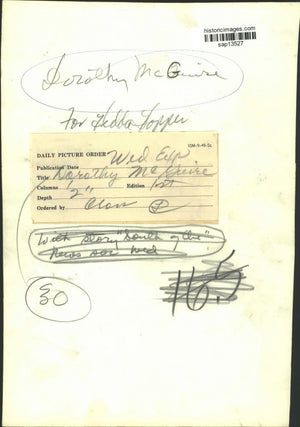 historicimages.com
sap13527
Dorothy McGuire
For Hedda Hopper
DAILY PICTURE ORDER
Publication Date Wed Exp
Title Dorothy McGuire
Columns Edition 1st
Depth 2"
Ordered by
With story "South of the"
Wed